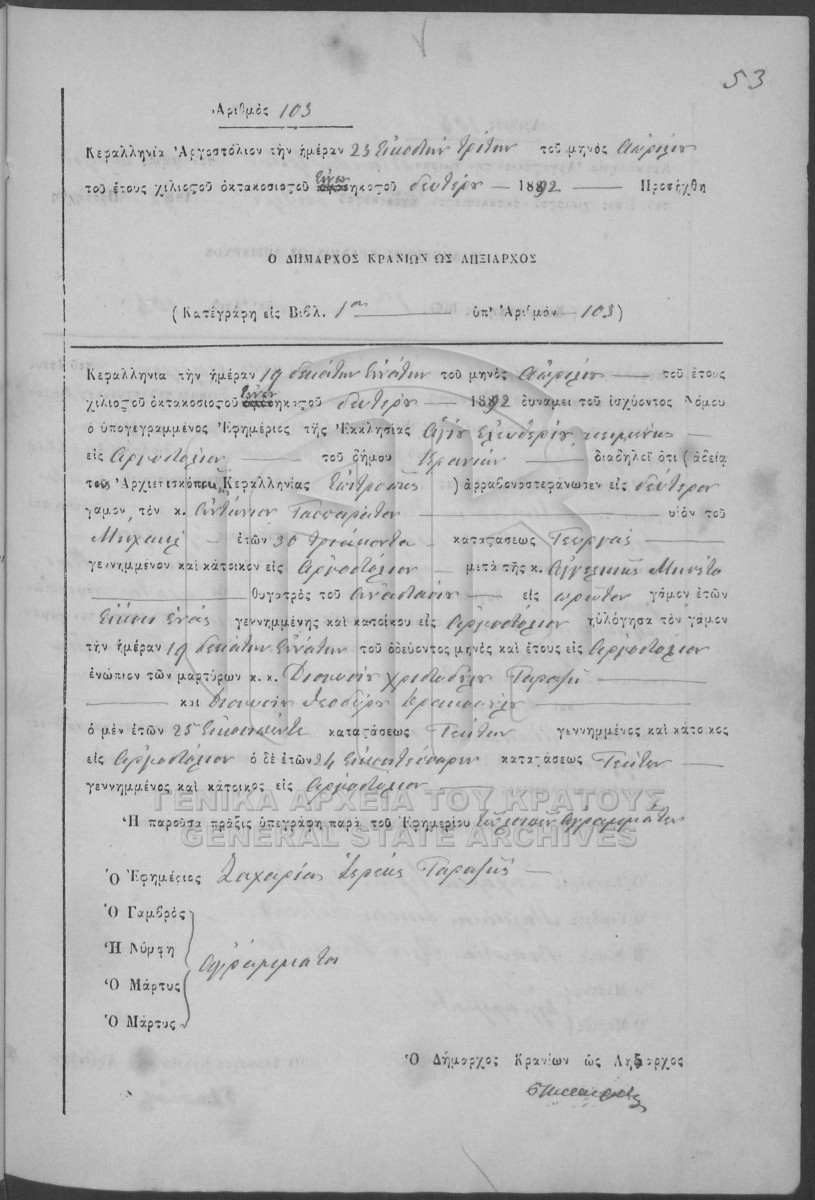 53
Ἀριθμὸς 103
Κεφαλληνία Ἀργοστόλιον τὴν ἡμέραν 23 Εἰκοστὴν τρίτην τοῦ μηνὸς Ἀπριλίου
τοῦ ἔτους χιλιοστοῦ ὀκτακοσιοστοῦ ἐνενηκοστοῦ δευτέρου — 1892 — Προσήχθη
Ο ΔΗΜΑΡΧΟΣ ΚΡΑΝΙΩΝ ΩΣ ΛΗΞΙΑΡΧΟΣ
(Κατεγράφη εἰς Βιβλ. 1ον — ὑπ' Ἀριθμὸν — 103)
Κεφαλληνία τὴν ἡμέραν 19 δεκάτην ἐννάτην τοῦ μηνὸς Ἀπριλίου — τοῦ ἔτους
χιλιοστοῦ ὀκτακοσιοστοῦ ἐνενηκοστοῦ δευτέρου — 1892 δυνάμει τοῦ ἰσχύοντος Νόμου
ὁ ὑπογεγραμμένος Ἐφημέριος τῆς Ἐκκλησίας Ἁγίου Ἐλευθερίου —
εἰς Ἀργοστόλιον — τοῦ δήμου Κρανίων — διαδηλοῖ ὅτι (ἀδείᾳ
τοῦ Ἀρχιεπισκόπου Κεφαλληνίας Ἐπιτροπῆς ) ἀρραβονοστεφάνωσεν εἰς δεύτερον
γάμον, τὸν κ. Ἀντώνιον Γασπαράτον — υἱὸν τοῦ
Μιχαὴλ — ἐτῶν 30 τριάκοντα — καταστάσεως Γεωργὸς —
γεννημένον καὶ κάτοικον εἰς Ἀργοστόλιον — μετὰ τῆς κ. Ἀγγελικῆς
— θυγατρὸς τοῦ Ἀναστασίου — εἰς πρῶτον γάμον ἐτῶν
Εἴκοσι ἑνὸς γεννημμένης καὶ κατοίκου εἰς Ἀργοστόλιον ηὐλόγησα τὸν γάμον
τὴν ἡμέραν 19 δεκάτην ἐννάτην τοῦ ὁδεύοντος μηνὸς καὶ ἔτους εἰς Ἀργοστόλιον
ἐνώπιον τῶν μαρτύρων κ. κ. Διονυσίου Χριστοδούλου —
— καὶ Διονυσίου Θεοδώρου —
ὁ μὲν ἐτῶν 25 Εἰκοσιπέντε καταστάσεως γεννημμένος καὶ κάτοικος
εἰς Ἀργοστόλιον ὁ δὲ ἐτῶν 24 Εἰκοσιτεσσάρων καταστάσεως —
γεννημμένος καὶ κάτοικος εἰς Ἀργοστόλιον —
Ἡ παροῦσα πρᾶξις ὑπεγράφη παρὰ τοῦ Ἐφημερίου τῶν λοιπῶν ἀγραμμάτων
Ὁ Ἐφημέριος Ζαχαρίας Ἱερεὺς —
Ὁ Γαμβρὸς
Ἡ Νύμφη
ἀγράμματοι
Ὁ Μάρτυς
Ὁ Μάρτυς
Ὁ Δήμαρχος Κρανίων ὡς Ληξίαρχος
ΓΕΝΙΚΑ ΑΡΧΕΙΑ ΤΟΥ ΚΡΑΤΟΥΣ
GENERAL STATE ARCHIVES